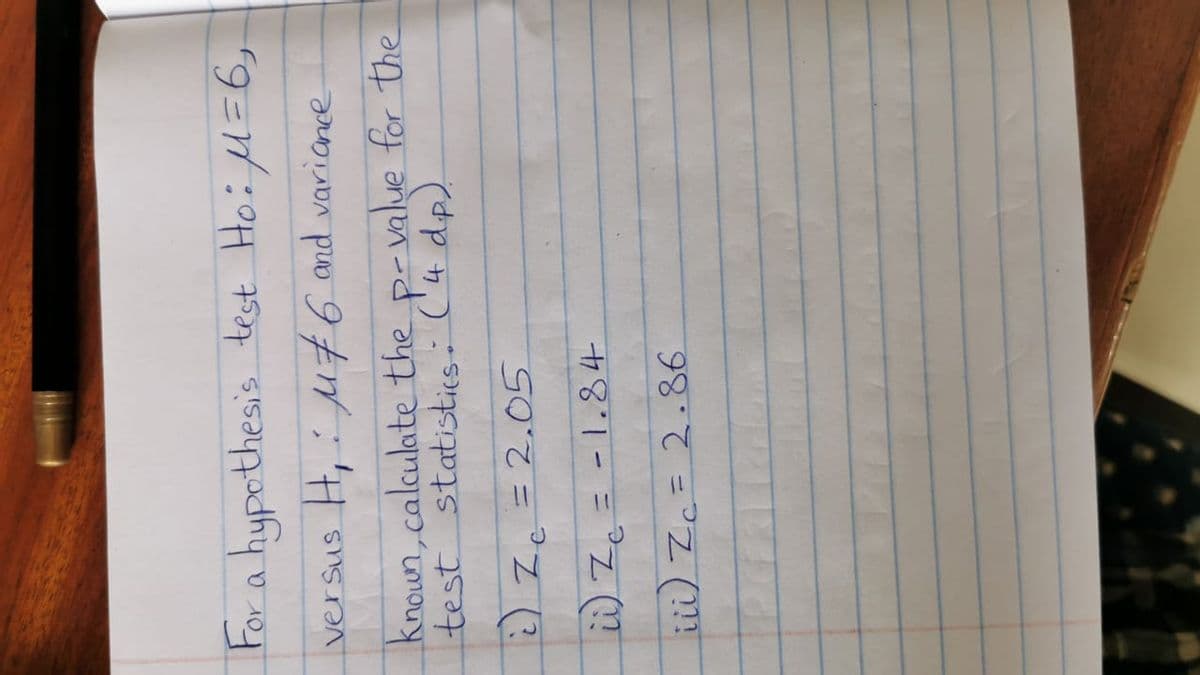 For a hypothesis test Ho: μ=6,
versus H₁: μ≠6 and variance
known, calculate the p-value for the
test statistics: (4 d.p).
i) Zc = 2.05
ii) Zc = -1.84
iii) Zc = 2.86